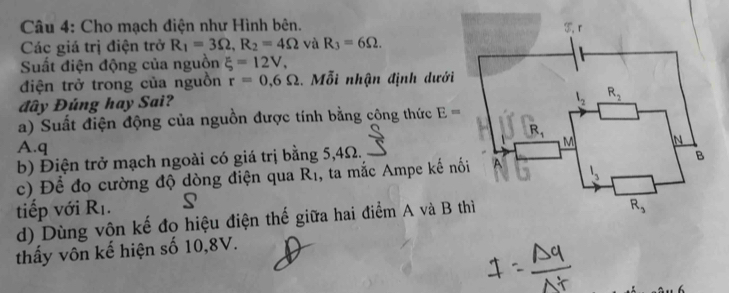 Câu 4: Cho mạch điện như Hình bên.
Các giá trị điện trở R₁ = 3Ω, R₂ = 4Ω và R₃ = 6Ω.
Suất điện động của nguồn ξ = 12V,
điện trở trong của nguồn r = 0,6 Ω. Mỗi nhận định dưới
đây Đúng hay Sai?
a) Suất điện động của nguồn được tính bằng công thức E =
A.q
S
b) Điện trở mạch ngoài có giá trị bằng 5,4Ω.
S
c) Để đo cường độ dòng điện qua R₁, ta mắc Ampe kế nối
tiếp với R₁.
S
d) Dùng vôn kế đo hiệu điện thế giữa hai điểm A và B thì
thấy vôn kế hiện số 10,8V.
Đ
, r
I₂ R₂
HỨC
NG
A I R₁ M N B
I₃
R₃
I = Δq
Δt